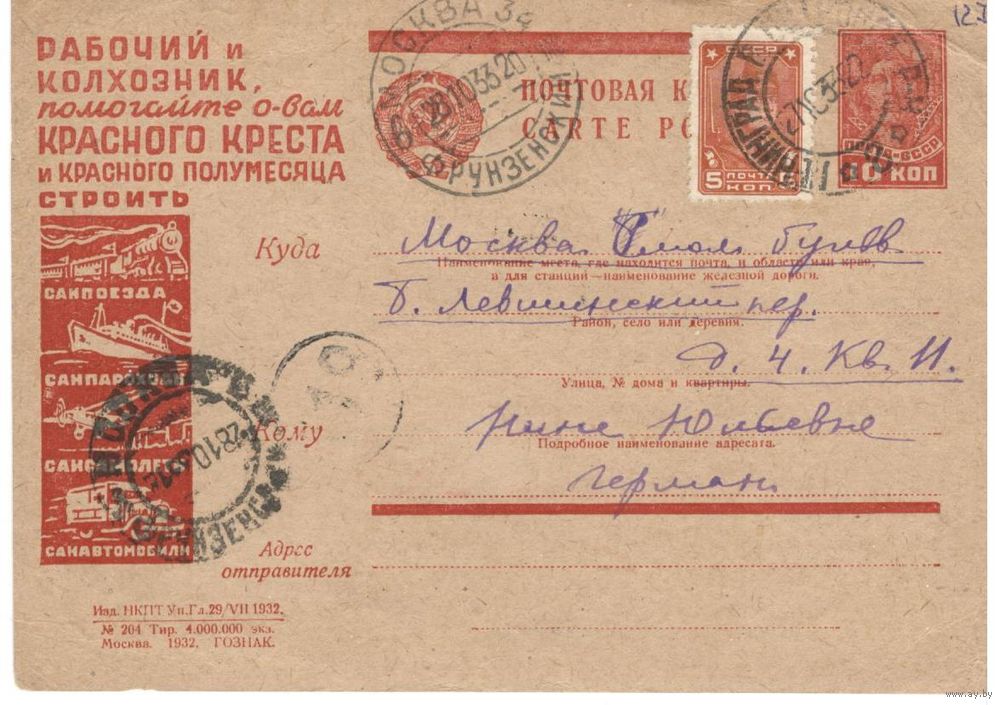 РАБОЧИЙ и
КОЛХОЗНИК,
помогайте о-вам
КРАСНОГО КРЕСТА
и КРАСНОГО ПОЛУМЕСЯЦА
СТРОИТЬ
САНПОЕЗДА
САНПАРОХОДЫ
САНСАМОЛЕТЫ
САНАВТОМОБИЛИ
МОСКВА 34
28.10.33.20
ФРУНЗЕНСКИЙ
ПОЧТОВАЯ К
CARTE PO
СССР
5 ПОЧТА 5
КОП
ЛЕНИНГРАД
27.10.33
ПОЧТА-СССР
10 КОП
123
Куда
Москва
Наименование места, где находится почта, и области или края,
а для станций—наименование железной дороги.
Б. Левшинский пер.
Район, село или деревня.
д. 4. Кв. 11.
Улица, № дома и квартиры.
Кому
Нине Юльевне
Подробное наименование адресата.
Герман
28.10.33
Адрес
отправителя
Изд. НКПТ Уп.Гл.29/VII 1932.
№ 204 Тир. 4.000.000 экз.
Москва. 1932. ГОЗНАК.
www.ay.by